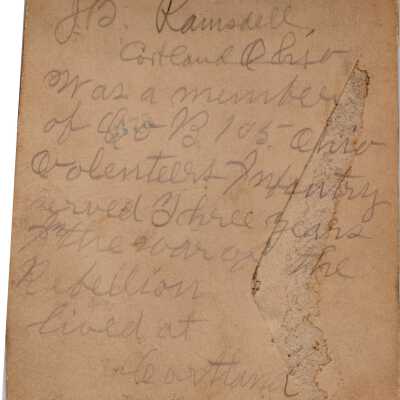 J.B. Ramsdell,
Cortland Ohio
Was a member
of Co B 105 Ohio
Volenteers Infantry
served Three years
In the war of the
Rebellion
lived at
Courtland